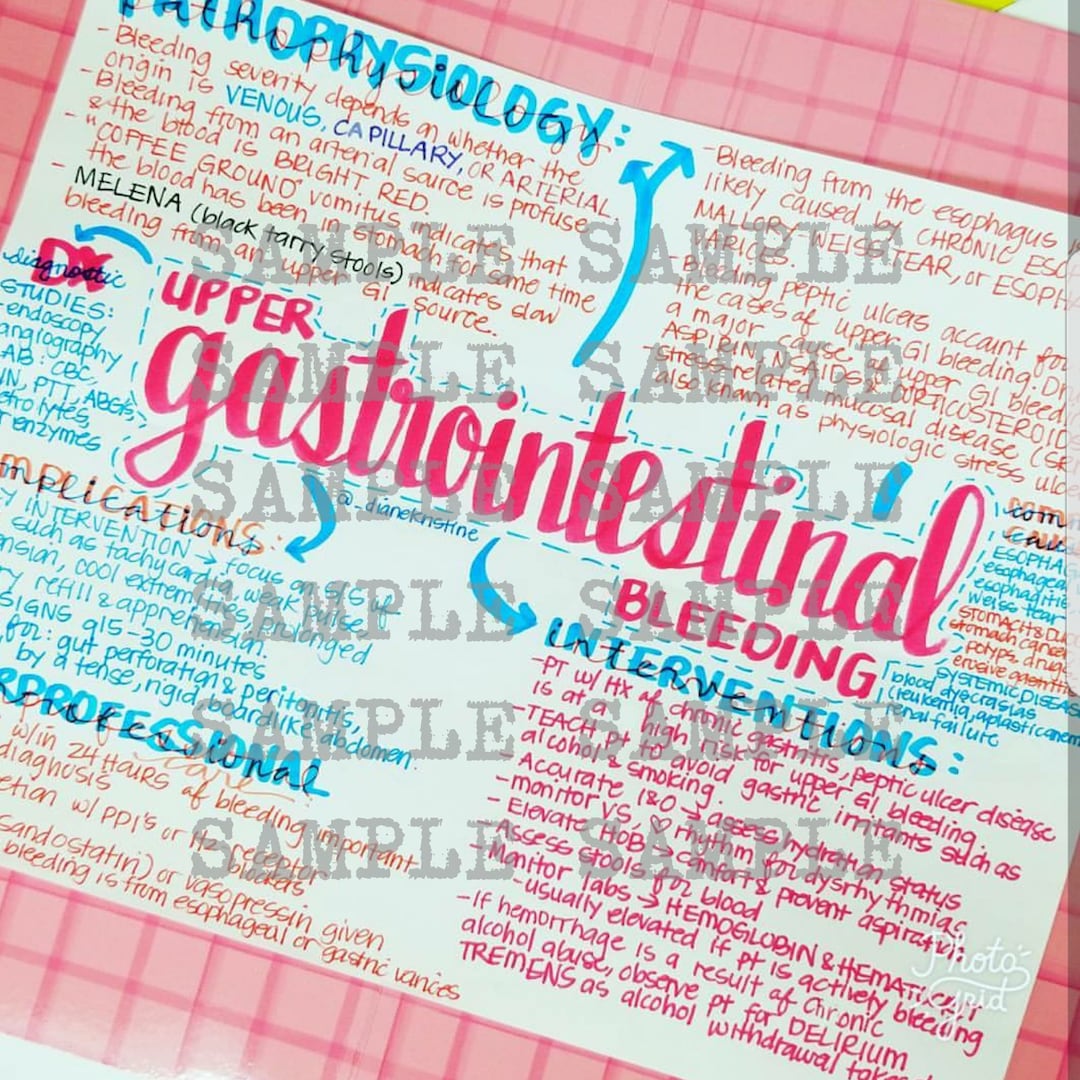 PATHOPHYSIOLOGY:
pathophysiology
- Bleeding severity depends on whether the
origin is VENOUS, CAPILLARY, OR ARTERIAL
- Bleeding from an arterial source is profuse
& the blood is BRIGHT RED.
- "COFFEE GROUND" vomitus indicates that
the blood has been in stomach for some time
- MELENA (black tarry stools) indicates slow
bleeding from an upper GI source.
- Bleeding from the esophagus
likely caused by CHRONIC ESO
MALLORY-WEISS TEAR, or ESOPHA
VARICES
- Bleeding peptic ulcers account for
the cases of upper GI bleeding. Dr
a major cause of upper GI bleed
ASPIRIN, NSAIDS & CORTICOSTEROID
- stress-related mucosal disease (SR
also known as physiologic stress ulce
DX
diagnostic
STUDIES:
-endoscopy
angiography
LAB: CBC,
UN, PTT, ABGs,
trolytes,
enzymes
UPPER
gastrointestinal
BLEEDING
@_dianekristine
mplicATIONS:
omplications
INTERVENTION → focus on s/s of
such as tachycardia, weak pulse,
nsion, cool extremities, prolonged
ry refill & apprehension.
SIGNS q15-30 minutes
for: gut perforation & peritonitis,
by a tense, rigid, boardlike abdomen.
RPROFESSIONAL
professional
care
w/in 24 HOURS of bleeding important
diagnosis
etion w/ PPI's or H2 receptor
blockers
sandostatin) or vasopressin given
bleeding is from esophageal or gastric varices
com
cau
ESOPHAG
esophageal
esophagitis
Weiss tear
STOMACH & DUO
stomach cancer
polyps, drug
erosive gastritis
SYSTEMIC DISEASE
blood dyscrasias
(leukemia, aplastic anem
renal failure
INTERVENTIONS:
interventions
- PT w/ Hx of chronic gastritis, peptic ulcer disease
is at a high risk for upper GI bleeding.
- TEACH pt to avoid gastric irritants such as
alcohol & smoking.
- Accurate I&O → assess hydration status
- monitor VS, ♡ rhythm for dysrhythmias
- Elevate HOB → comfort & prevent aspiration
- Assess stools for blood
- Monitor labs → HEMOGLOBIN & HEMATOCRIT
- usually elevated if pt is actively bleeding
- If hemorrhage is a result of chronic
alcohol abuse, observe pt for DELIRIUM
TREMENS as alcohol withdrawal takes
SAMPLE SAMPLE
SAMPLE SAMPLE
SAMPLE SAMPLE
SAMPLE SAMPLE
SAMPLE SAMPLE
SAMPLE SAMPLE
Photo
Grid